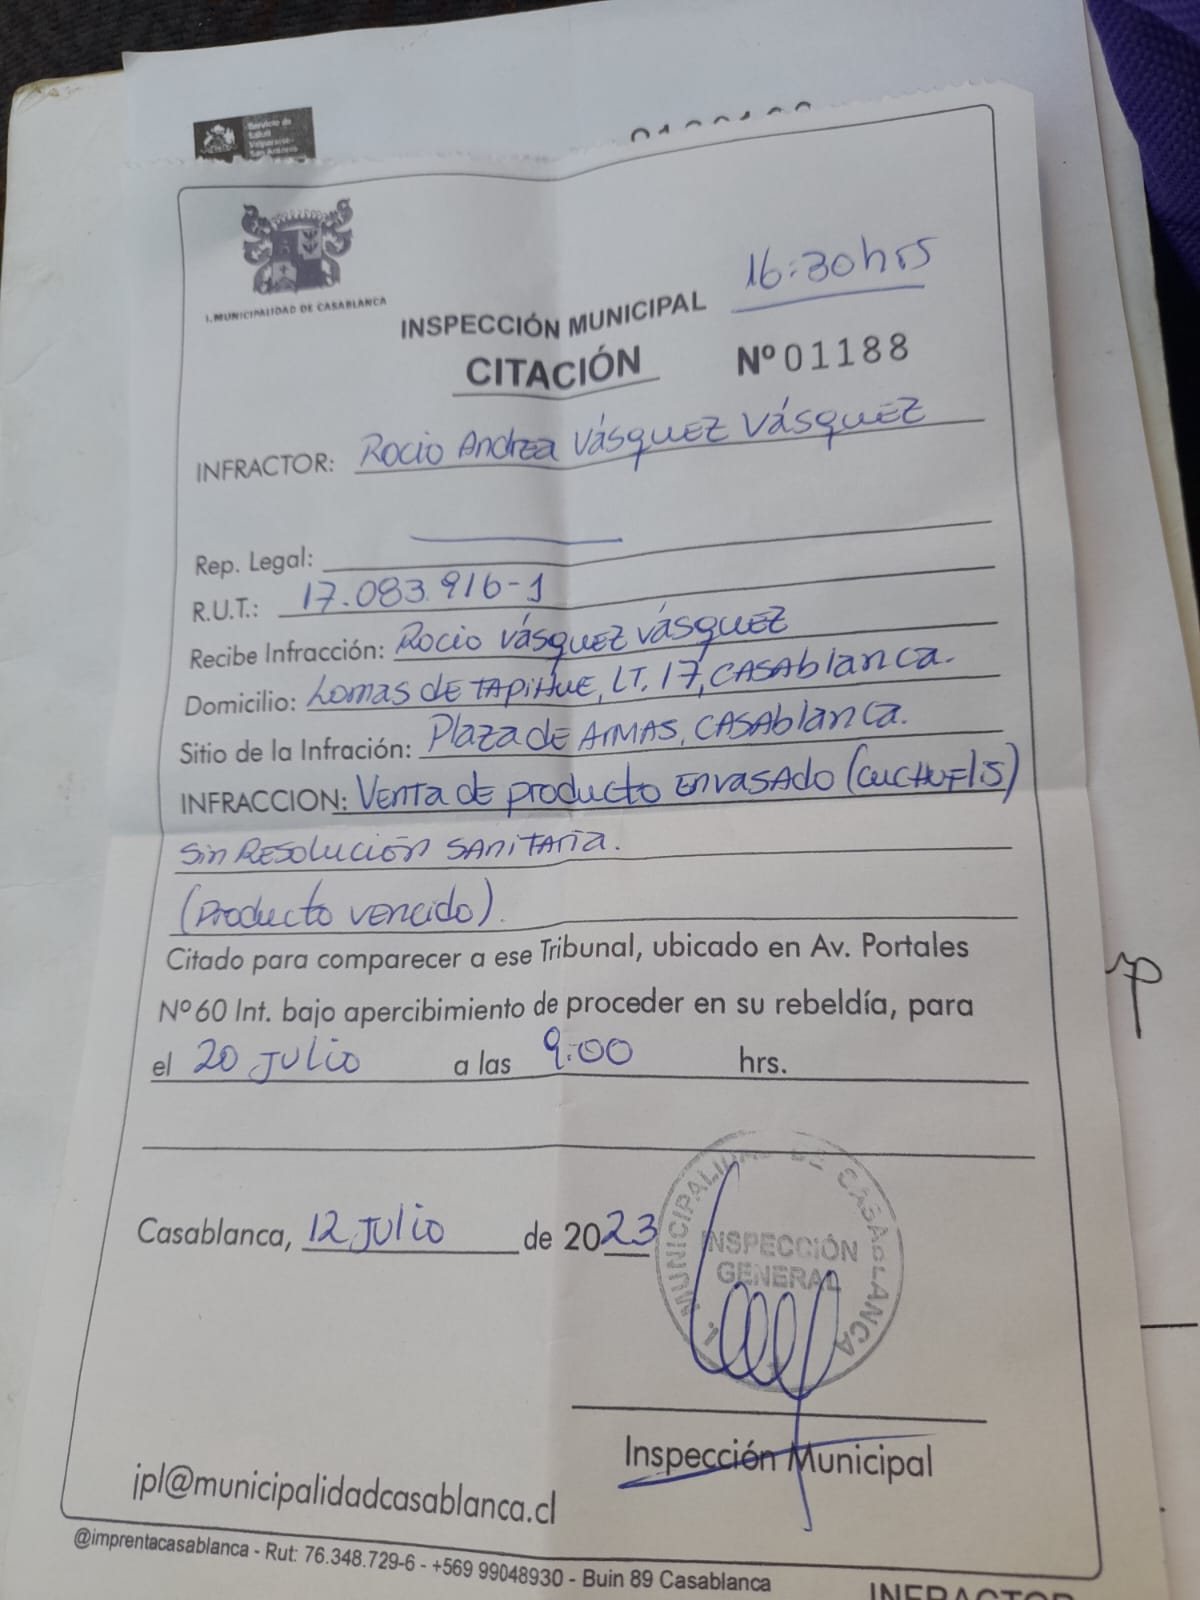 Servicio de
Salud
Valparaíso -
San Antonio
I. MUNICIPALIDAD DE CASABLANCA
16:30 hrs
INSPECCIÓN MUNICIPAL
CITACIÓN Nº 01188
INFRACTOR: Rocio Andrea Vásquez Vásquez
Rep. Legal:
R.U.T.: 17.083.916-1
Recibe Infracción: Rocio Vásquez Vásquez
Domicilio: Lomas de Tapihue, LT. 17, Casablanca.
Sitio de la Infración: Plaza de Armas, Casablanca.
INFRACCION: Venta de producto envasado (cuchuflis)
sin Resolución sanitaria.
(Producto vencido).
Citado para comparecer a ese Tribunal, ubicado en Av. Portales
Nº 60 Int. bajo apercibimiento de proceder en su rebeldía, para
el 20 Julio a las 9:00 hrs.
Casablanca, 12 Julio de 2023
I. MUNICIPALIDAD DE CASABLANCA
INSPECCIÓN
GENERAL
Inspección Municipal
jpl@municipalidadcasablanca.cl
@imprentacasablanca - Rut: 76.348.729-6 - +569 99048930 - Buin 89 Casablanca
INFRACTOR